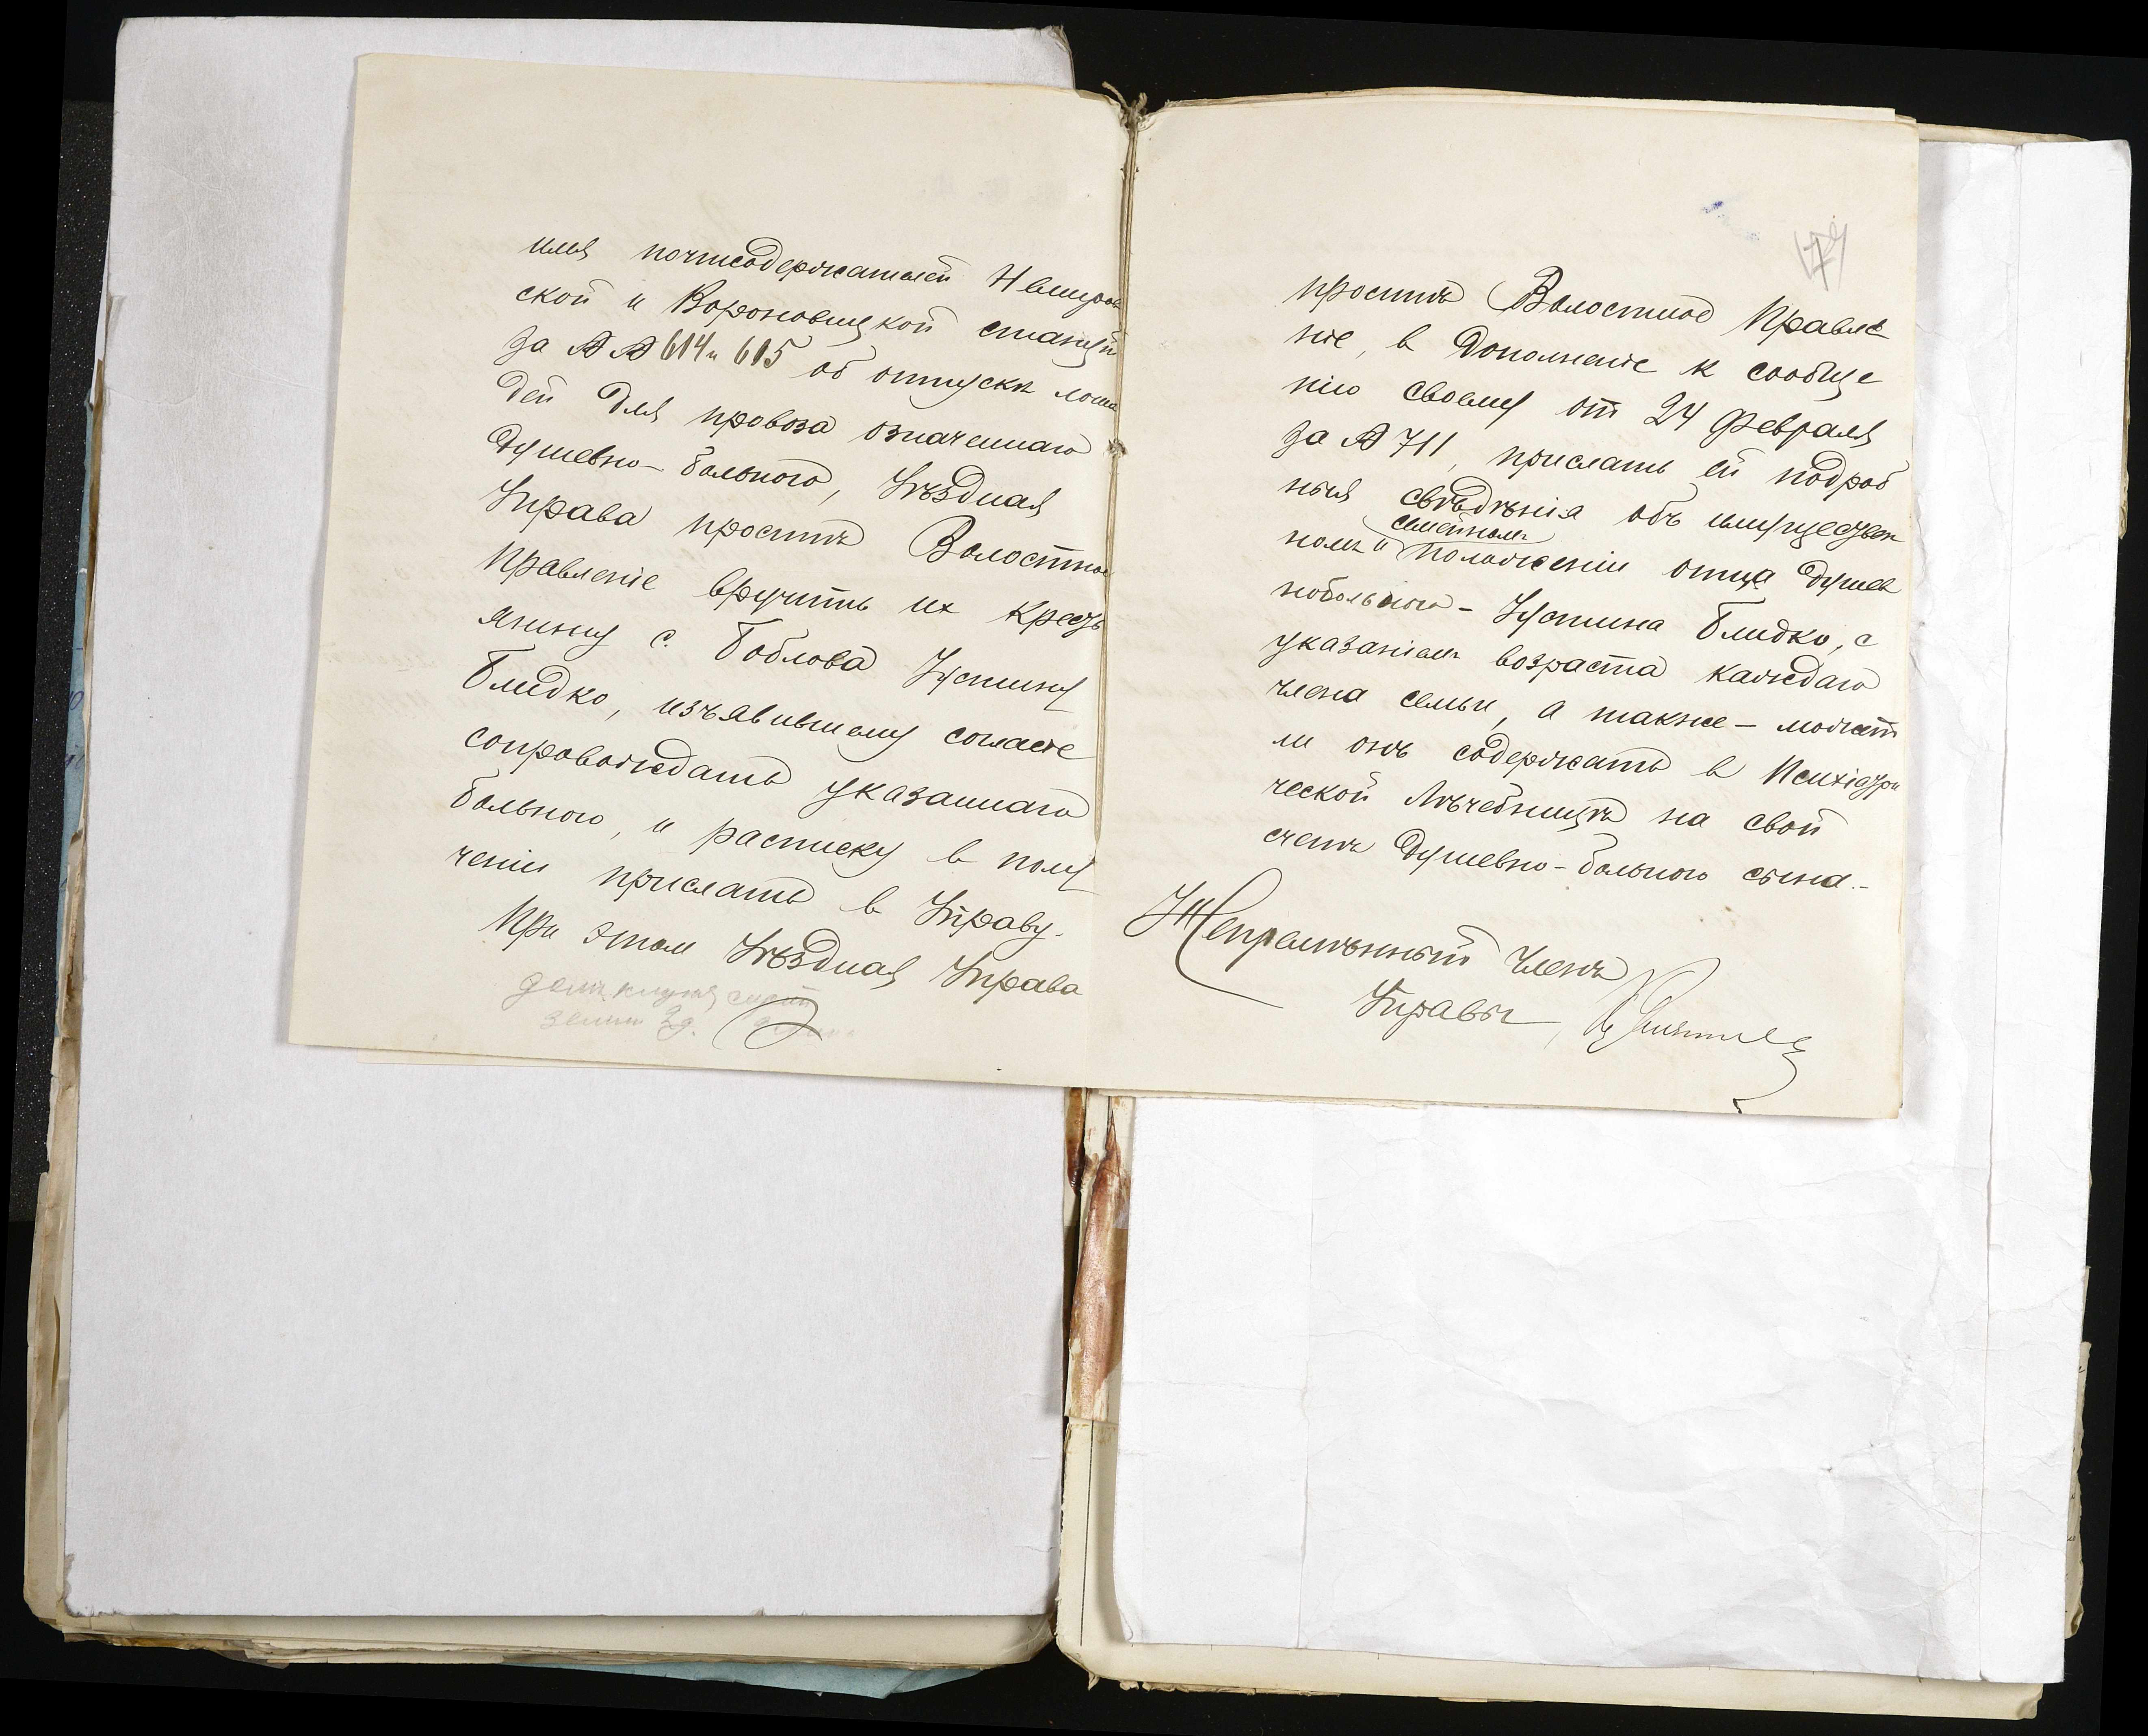 имя почтсодержателей Немиров
ской и Вороновицкой станцій
за №№ 614 и 615 об отпуске лоша
дей для провоза означеннаго
душевно-больного, Уѣздная
Управа проситъ Волостное
Правленіе вручить их кресть
янину с. Боблова Устину
Блидко, изъявившему согласіе
сопровождать указаннаго
больного, и расписку в полу
ченіи прислать в Управу.
При этом Уѣздная Управа
проситъ Волостное Правле
ніе, в дополненіе к сообще
нію своему от 24 февраля
за № 711, прислать ей подроб
ныя свѣдѣнія объ имуществен
семейномъ
номъ и положеніи отца душев
нобольного - Устина Блидко, с
указаніемъ возраста каждаго
члена семьи, а также - может
ли онъ содержать в Психіатри
ческой Лѣчебницѣ на свой
счетъ душевно-больного сына.-
Непремѣнный Членъ
Управы,